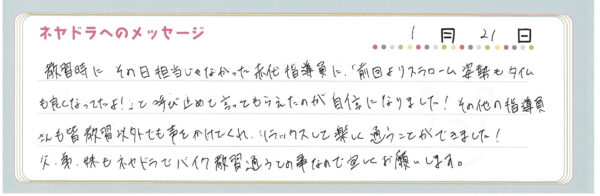 ネヤドラへのメッセージ
1月 21日
教習時に その日担当じゃなかった赤代指導員に、「前回よりスラローム姿勢もタイム
も良くなってたよ!」と呼び止めて言ってもらえたのが自信になりました!その他の指導員
さんも皆教習以外でも声をかけてくれ、リラックスして楽しく通うことができました!
父、弟、妹もネヤドラでバイク教習通うとの事なので宜しくお願いします。